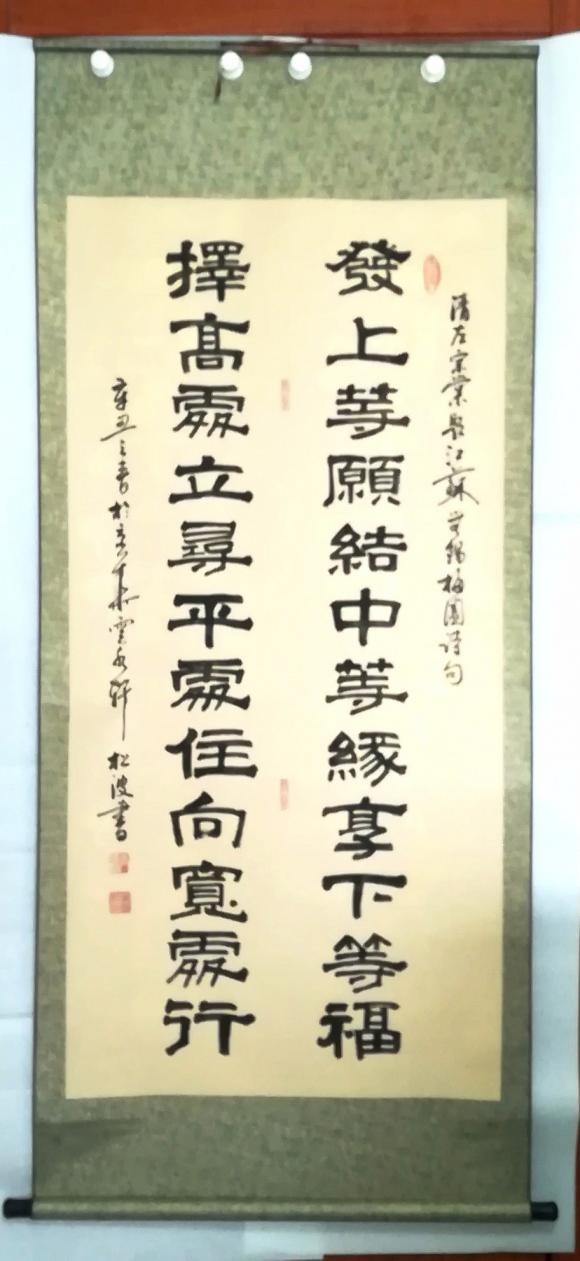 清左宗棠題江蘇無錫梅園詩句
發上等願結中等緣享下等福
擇髙處立尋平處住向寬處行
辛丑之春於京華雲水軒松波書